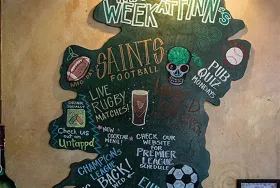 WEEK AT FINN'S
SAINTS
WHO DAT
FOOTBALL
PUB
QUIZ
MONDAYS
LIVE
RUGBY
MATCHES!
Check us
out on
Untappd
*NEW*
COCKTAIL
MENU!
CHECK OUR
WEBSITE
FOR
PREMIER
LEAGUE
SCHEDULE
CHAMPIONS
LEAGUE
BACK!